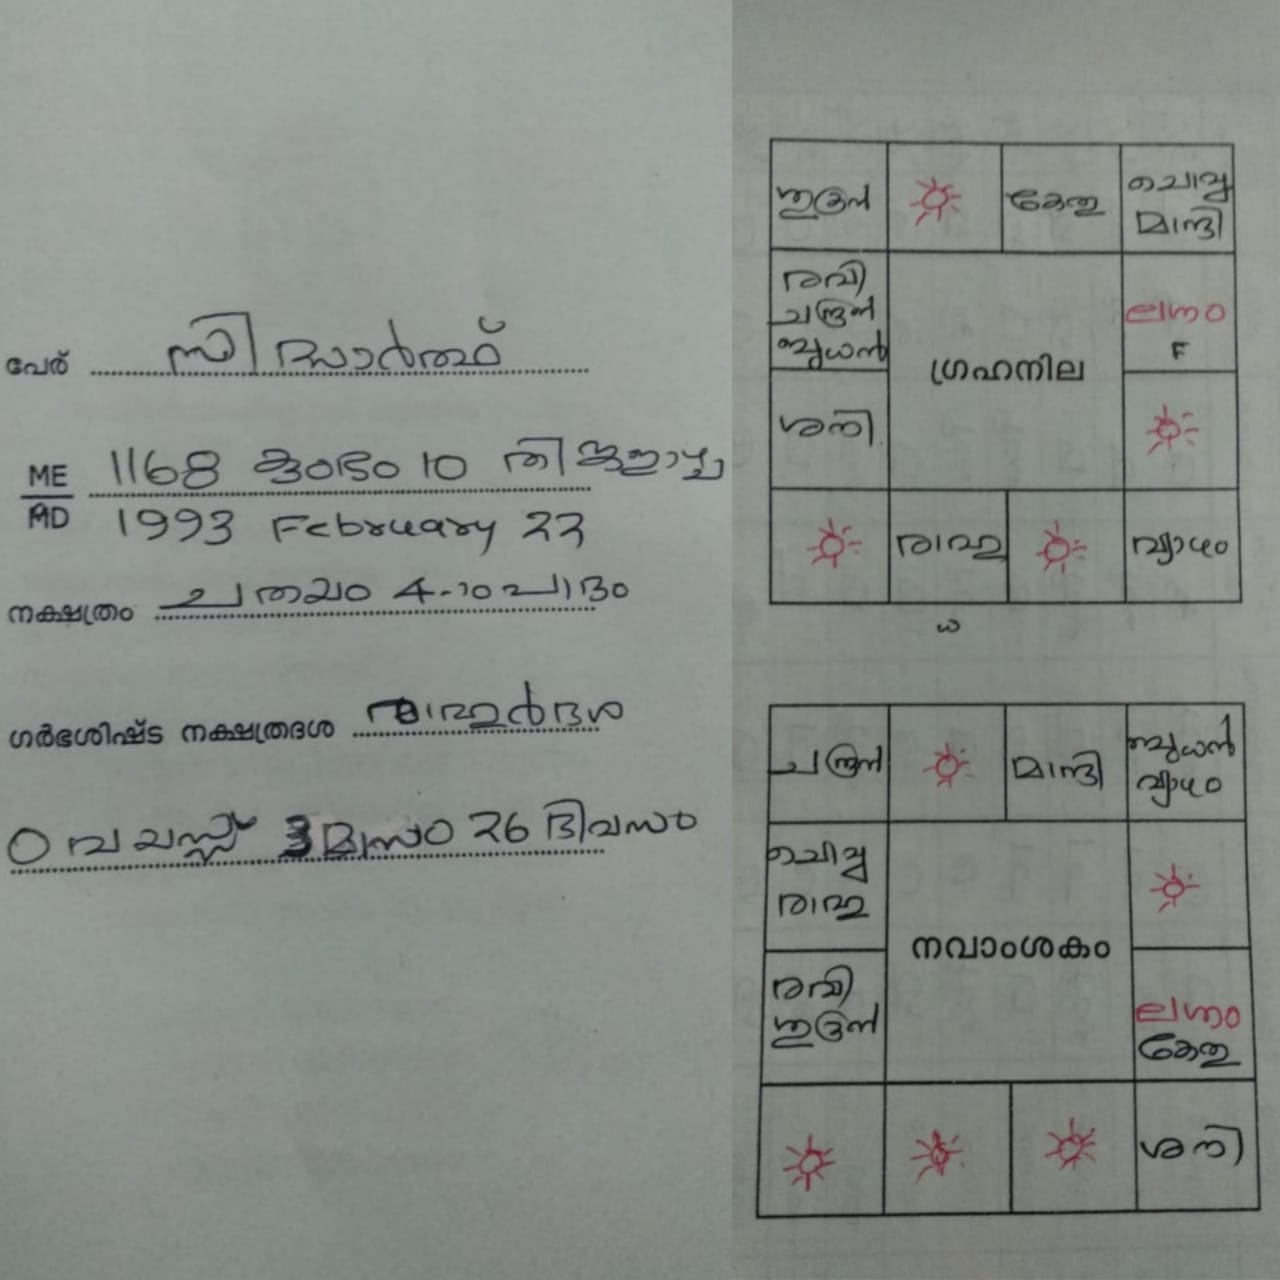 പേര് സിദ്ധാർത്ഥ്
ME 1168 കുംഭം 10 തിങ്കളാഴ്ച
AD 1993 February 22
നക്ഷത്രം ചതയം 4-ാം പാദം
ഗർഭശിഷ്ട നക്ഷത്രദശ രാഹുർദശ
0 വയസ്സ് 3 മാസം 26 ദിവസം
ശുക്രൻ കേതു ചൊവ്വ
മാന്ദി
രവി
ചന്ദ്രൻ
ബുധൻ
ഗ്രഹനില
ലഗ്നം
ശനി
രാഹു വ്യാഴം
ചന്ദ്രൻ മാന്ദി ബുധൻ
വ്യാഴം
ചൊവ്വ
രാഹു
നവാംശകം
രവി
ശുക്രൻ
ലഗ്നം
കേതു
ശനി